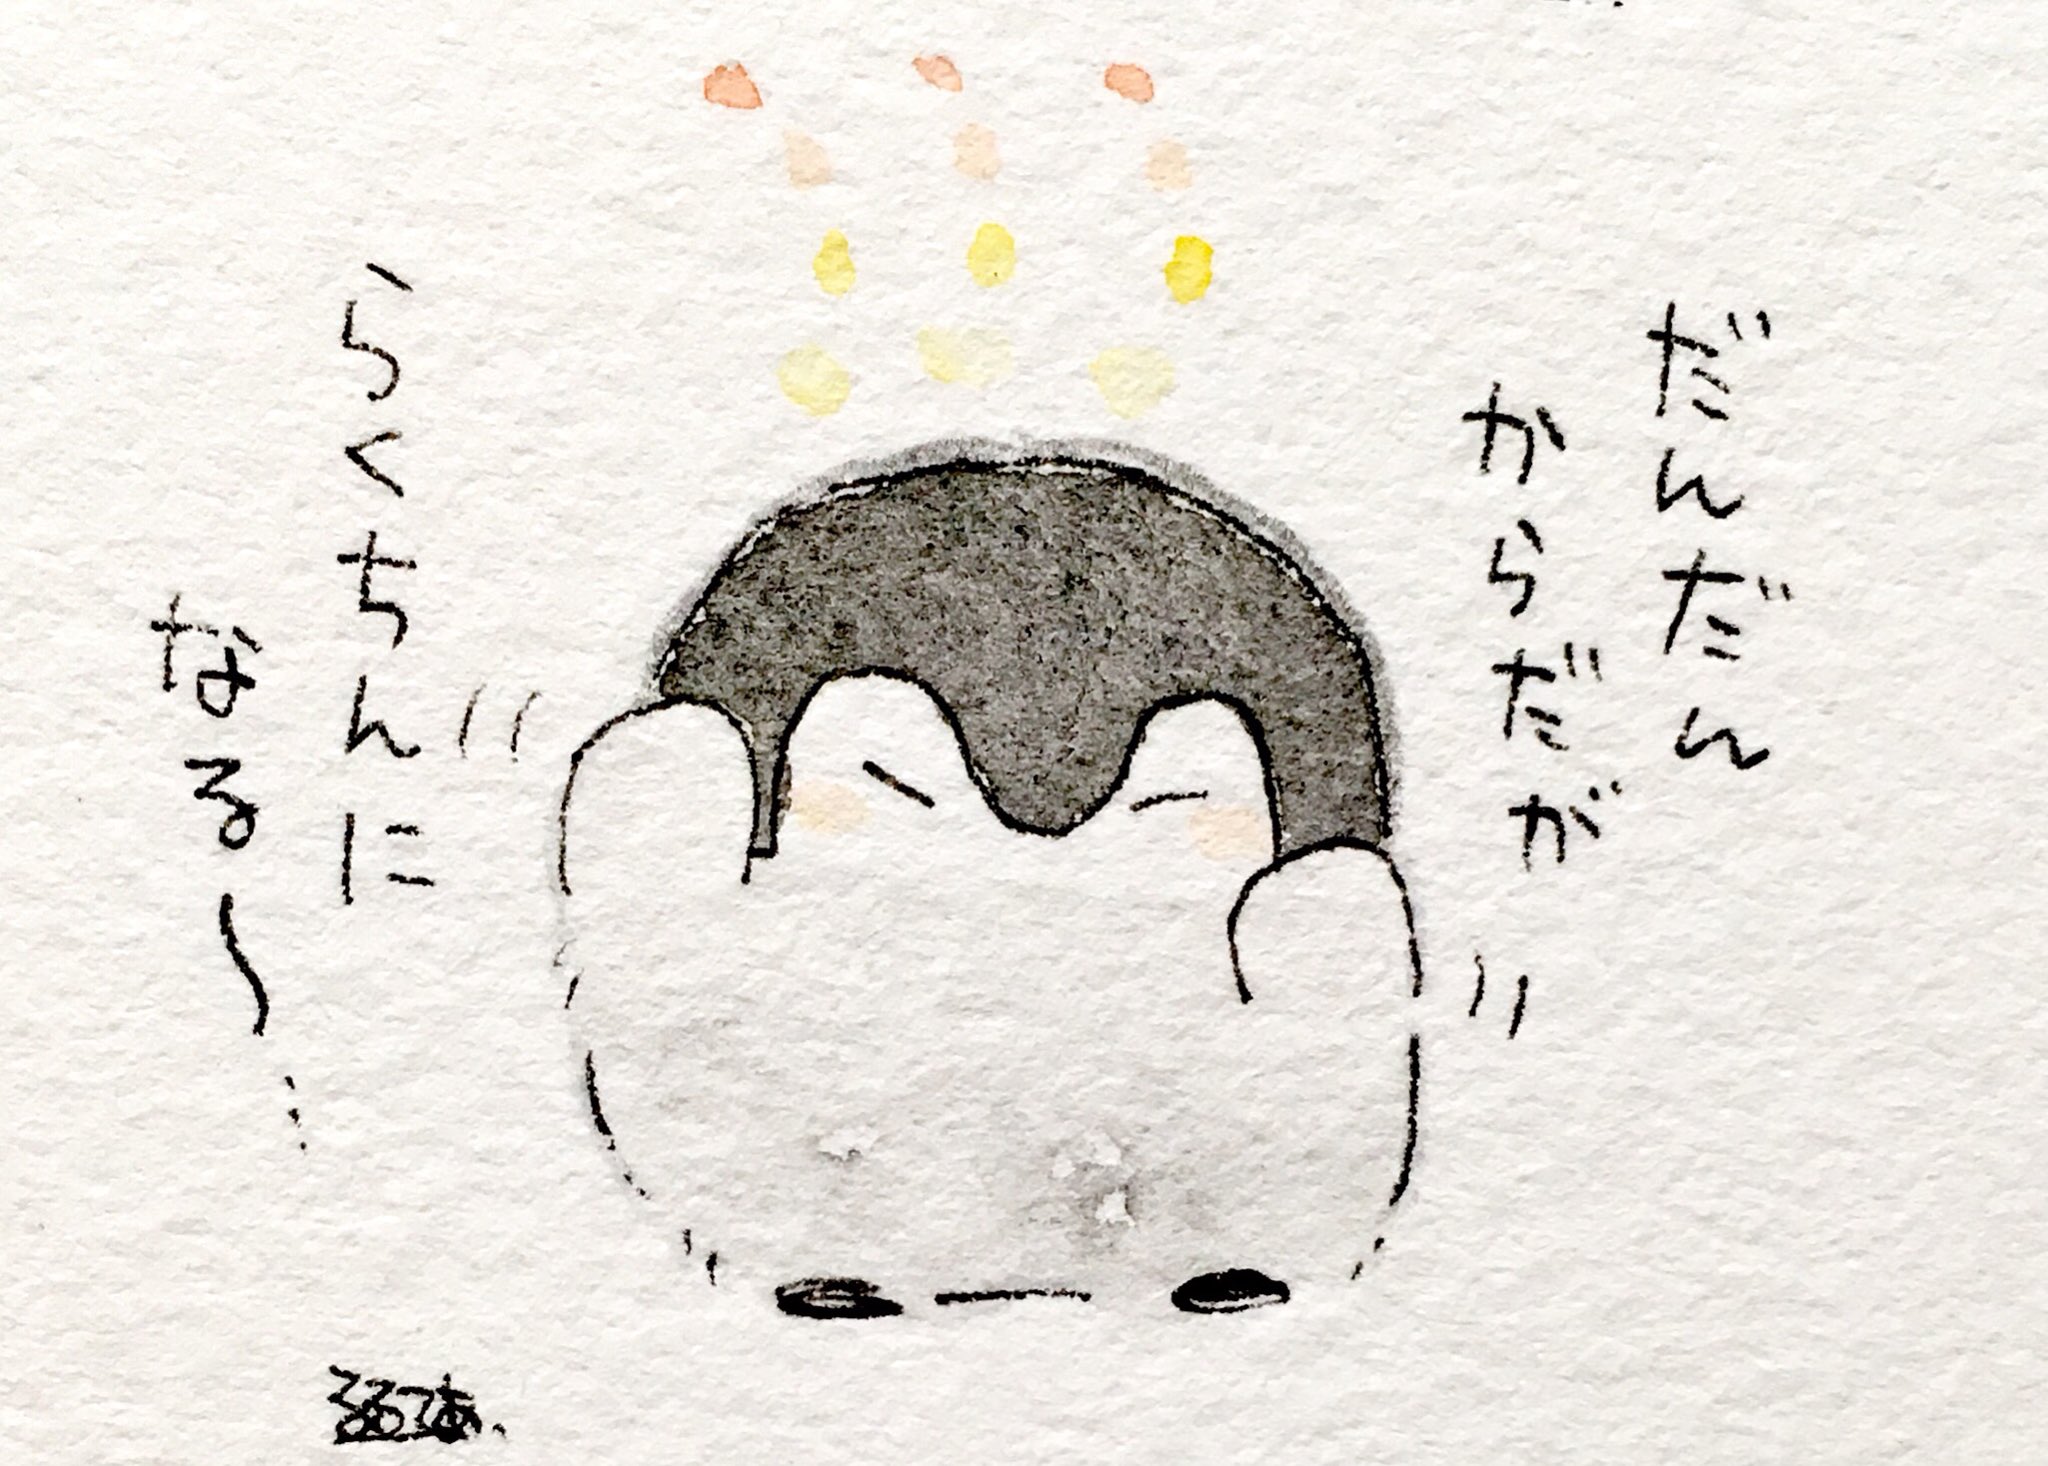 だんだん
からだが
らくちんに
なる〜…
るるてあ